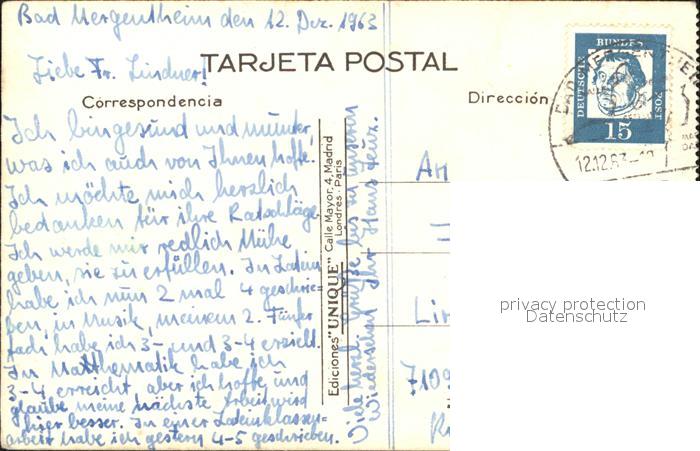 Bad Mergentheim den 12. Dez. 1963
TARJETA POSTAL
Liebe Fr. Lindner!
Correspondencia
Dirección
Ich bin gesund und munter,
was ich auch von Ihnen hoffe.
Ich möchte mich herzlich
bedanken für ihre Ratschläge.
Ich werde mir redlich Mühe
geben, sie zu erfüllen. In Latein
habe ich nun 2 mal 4 geschrie-
ben, in Musik, meinem 2. Fünfer
fach habe ich 3- und 3-4 erzielt.
In Matthematik habe ich
3-4 erreicht aber ich hoffe und
glaube meine nächste Arbeit wird
besser. In einer Lateinklassen-
arbeit habe ich gestern 4-5 geschrieben.
Viele herzl. Grüße bis zu unseren
Wiedersehen Ihr Hans
Ediciones "UNIQUE" Calle Mayor, 4, Madrid
Londres - Paris
DEUTSCHE
BUNDES
POST
15
12.12.63
An
Lin
privacy protection
Datenschutz